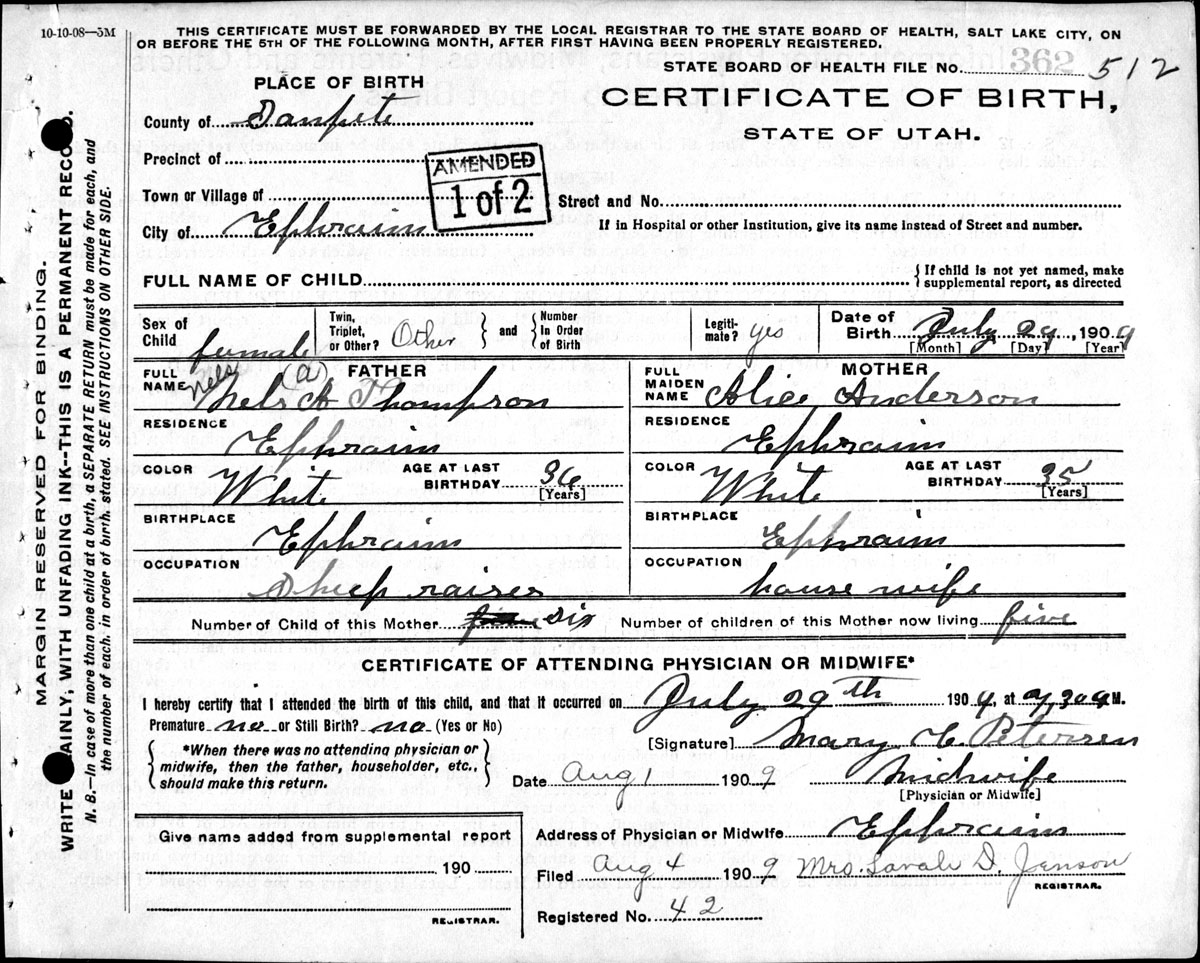 10-10-08—5M
THIS CERTIFICATE MUST BE FORWARDED BY THE LOCAL REGISTRAR TO THE STATE BOARD OF HEALTH, SALT LAKE CITY, ON
OR BEFORE THE 5TH OF THE FOLLOWING MONTH, AFTER FIRST HAVING BEEN PROPERLY REGISTERED.
362
STATE BOARD OF HEALTH FILE No. 512
CERTIFICATE OF BIRTH,
STATE OF UTAH.
PLACE OF BIRTH
County of Sanpete
Precinct of
Town or Village of
City of Ephraim
AMENDED
1 of 2
Street and No.
If in Hospital or other Institution, give its name instead of Street and number.
FULL NAME OF CHILD
{ If child is not yet named, make
supplemental report, as directed
Sex of Child female
Twin, Triplet, or Other? Other } and { Number In Order of Birth
Legiti- mate? yes
Date of Birth July 29, 1909
[Month] [Day] [Year]
FATHER
FULL NAME Nels A Thompson
Nels (a)
RESIDENCE
Ephraim
COLOR White AGE AT LAST BIRTHDAY 36
[Years]
BIRTHPLACE
Ephraim
OCCUPATION
Sheep raiser
MOTHER
FULL MAIDEN NAME Alice Anderson
RESIDENCE
Ephraim
COLOR White AGE AT LAST BIRTHDAY 35
[Years]
BIRTHPLACE
Ephraim
OCCUPATION
house wife
Number of Child of this Mother six Number of children of this Mother now living five
CERTIFICATE OF ATTENDING PHYSICIAN OR MIDWIFE*
I hereby certify that I attended the birth of this child, and that it occurred on July 29th 1909, at M.
Premature no or Still Birth? no (Yes or No)
{ *When there was no attending physician or
midwife, then the father, householder, etc.,
should make this return. }
[Signature] Mary C. Petersen
Date Aug 1 1909 midwife
[Physician or Midwife]
Give name added from supplemental report
190
REGISTRAR.
Address of Physician or Midwife Ephraim
Filed Aug 4 1909 Mrs. Sarah D. Jenson
REGISTRAR.
Registered No. 42
MARGIN RESERVED FOR BINDING.
WRITE AINLY, WITH UNFADING INK--THIS IS A PERMANENT RECO D.
N. B.—In case of more than one child at a birth, a SEPARATE RETURN must be made for each, and
the number of each, in order of birth, stated. SEE INSTRUCTIONS ON OTHER SIDE.